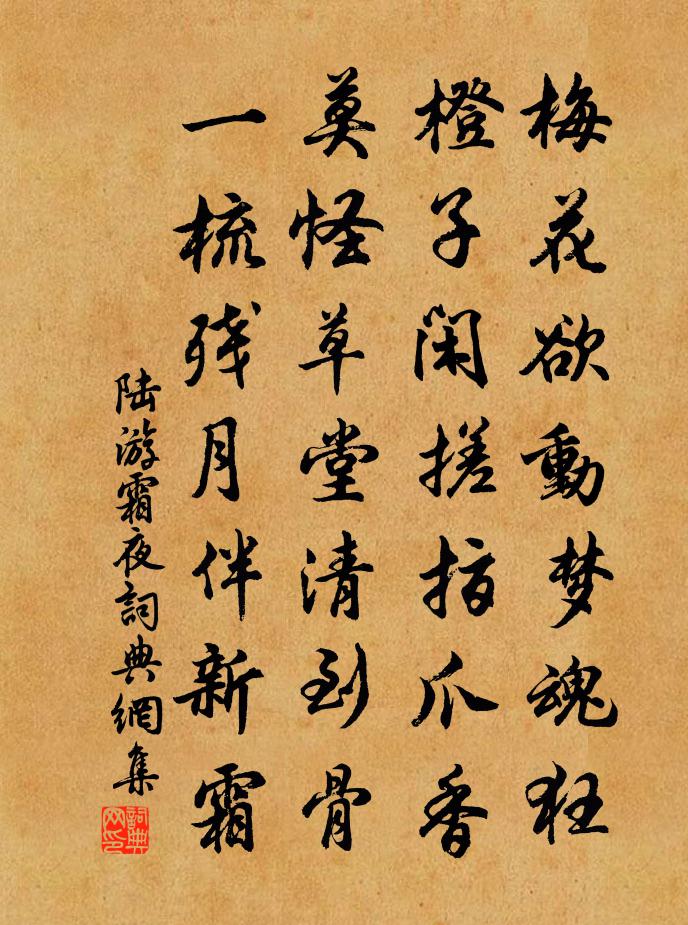 梅花欲動梦魂狂
橙子闲搓指爪香
莫怪草堂清到骨
一梳残月伴新霜
陆游霜夜詞典網集
詞典网印